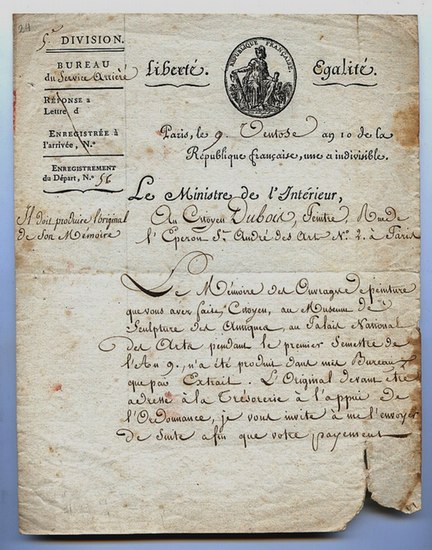 24
5e DIVISION.
BUREAU
du Service Arriéré
RÉPONSE à
Lettre d
ENREGISTRÉE à
l'arrivée, N.º
ENREGISTREMENT
du Départ, N.º 56
Liberté.
RÉPUBLIQUE FRANÇAISE.
Egalité.
Paris, le 9. Ventose an 10 de la
République française, une & indivisible.
Le Ministre de l'Intérieur,
Il doit produire l'original
de Son Mémoire
Au Citoyen Dubois, Peintre, Rue de
l'Eperon St. André des Arts No. 2. à Paris
Le Mémoire des Ouvrages de peinture
que vous avez faits, Citoyen, au Museum de
Sculpture des Antiques, au Palais National
des Arts pendant le premier Semestre de
l'An 9, n'a été produit dans mes Bureaux
que par Extrait. L'Original devant être
adressé à la Trésorerie à l'appui de
l'Ordonnance, je vous invite à me l'envoyer
de Suite afin que votre payement